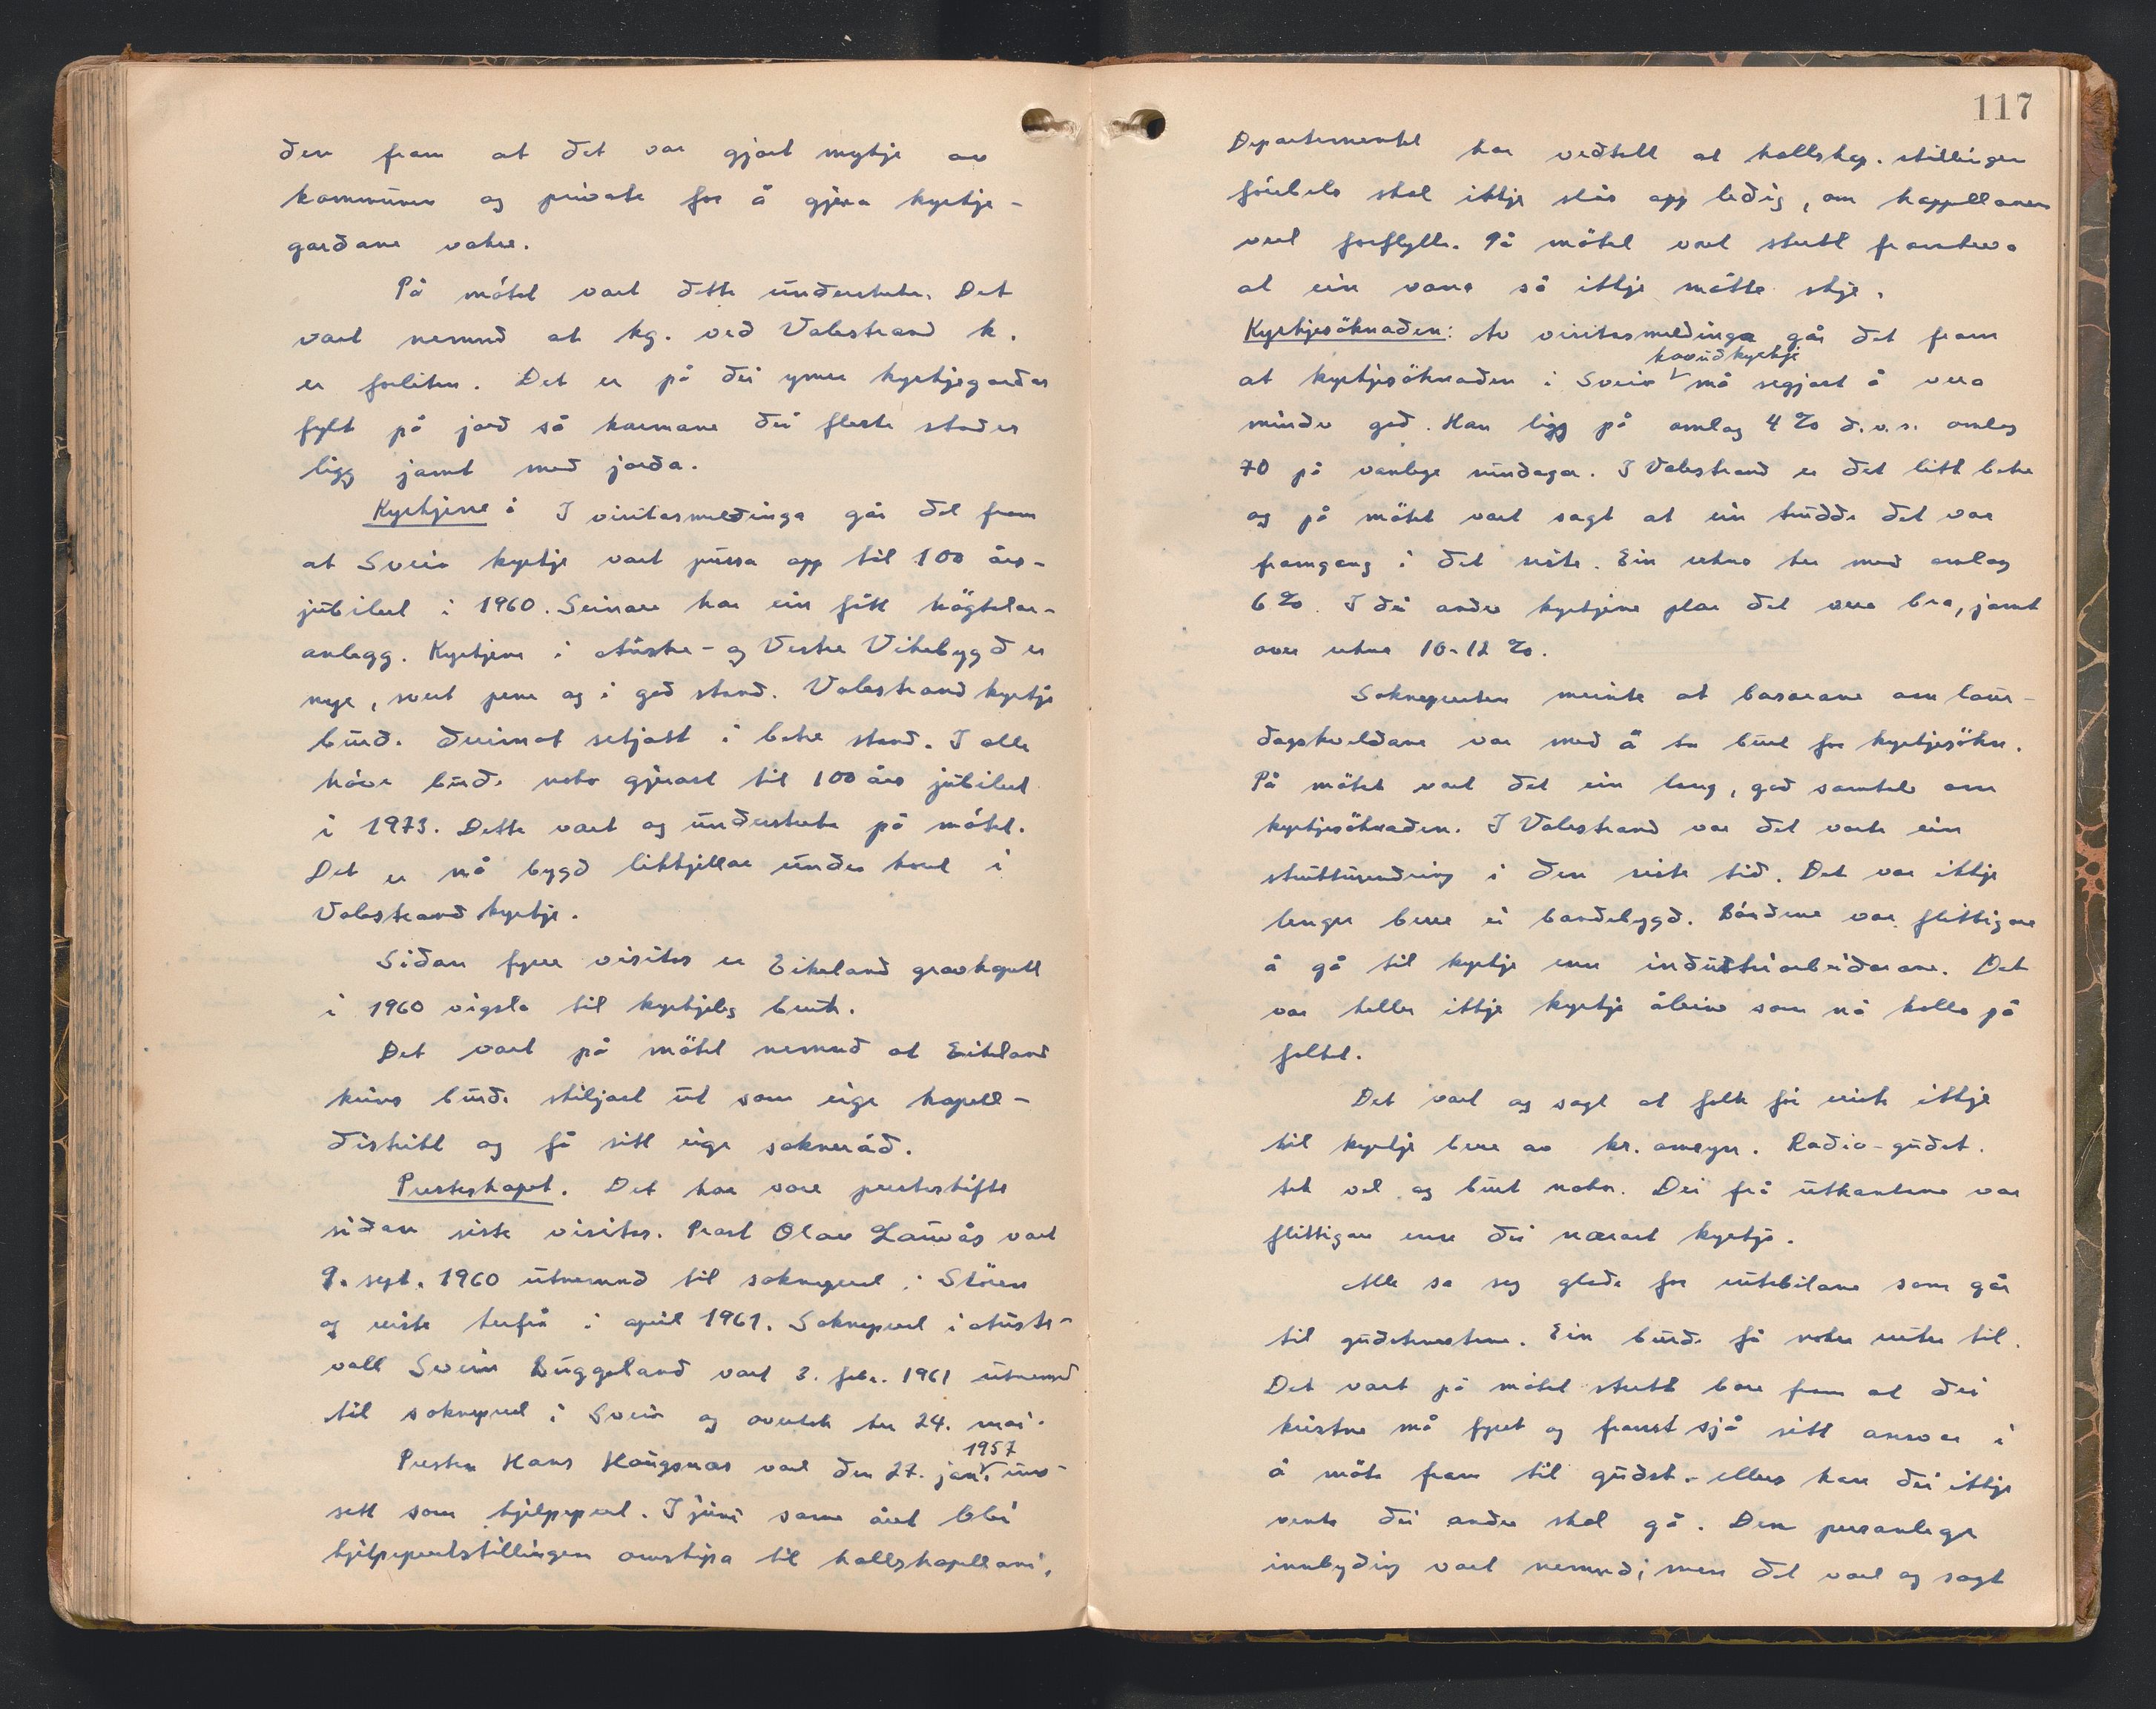 den fram at det var gjort mykje av
kommunen og private for å gjera kyrkje-
gardane vakre.
På mötet vart dette understreka. Det
vart nemnd at kg. ved Valestrand k.
er forliten. Det er på dei ymse kyrkjegardar
fylt på jord så karmane dei fleste stader
ligg jamt med jorda.
Kyrkjene: I visitasmeldinga går det fram
at Sveio kyrkje vart pussa opp til 100 års-
jubileet i 1960. Seinare har ein fått högtalar-
anlegg. Kyrkjene i Austre- og Vestre Vikebygd er
nye, svert pene og i god stand. Valestrand kyrkje
burde derimot setjast i betre stand. I alle
höve burde noko gjerast til 100 års jubileet
i 1973. Dette vart og understreka på mötet.
Det er nå bygd likkjellar under koret i
Valestrand kyrkje.
Sidan fyrre visitas er Eikeland gravkapell
i 1960 vigsla til kyrkjeleg bruk.
Det vart på mötet nemnd at Eikeland
krins burde skiljast ut som eige kapell-
distrikt og få sitt eige sokneråd.
Presteskapet. Det har vore presteskifte
sidan siste visitas. Prost Olav Lauvås vart
9. sept. 1960 utnemnd til sokneprest i Stören
og reiste herfrå i april 1961. Sokneprest i Aust-
voll Svein Buggeland vart 3. febr. 1961 utnemnd
til sokneprest i Sveio og overtok her 24. mai.
Presten Hans Haugsnæs vart den 27. jan. 1957 inn-
sett som hjelpeprest. I juni same året blei
hjelpeprestsstillingen omskipa til kallskapellani,
117
Departementet har vedteke at kallskap. stillingen
förebels skal ikkje slås opp ledig, om kappellanen
vert forflytt. På mötet vart sterkt framheva
at ein vona så ikkje måtte skje.
Kyrkjesöknaden: Av visitasmeldinga går det fram
at kyrkjesöknaden i Sveio hovudkyrkje må segjast å vera
mindre god. Han ligg på omlag 4 % d.v.s. omlag
70 på vanlege sundagar. I Valestrand er det litt betre
og på mötet vart sagt at ein trudde det var
framgang i det siste. Ein rekna her med omlag
6 %. I dei andre kyrkjene plar det vera bra, jamt
over rekna 10-12 %.
Soknepresten meinte at basarane om laur-
dagskveldane var med å ta burt for kyrkjesökn.
På mötet vart det ein lang, god samtale om
kyrkjesöknaden. I Valestrand var det vorte ein
strukturendring i den siste tid. Det var ikkje
lenger berre ei bondebygd. Böndene var flittigare
å gå til kyrkje enn industriarbeidarane. Det
var heller ikkje kyrkje åleine som nå kalla på
folket.
Det vart og sagt at folk för reiste ikkje
til kyrkje berre av kr. omsyn. Radio-gudst.
tek vel og burt noko. Dei frå utkantene var
flittigare enn dei nærast kyrkje.
Alle sa seg glade for rutebilane som går
til gudstenestene. Ein burde få nokre ruter til.
Det vart på mötet sterkt bore fram at dei
kristne må fyrst og fremst sjå sitt ansvar i
å möte fram til gudst. - ellers kan dei ikkje
vente dei andre skal gå. Den personlege
innbyding vart nemnd; men det vart og sagt